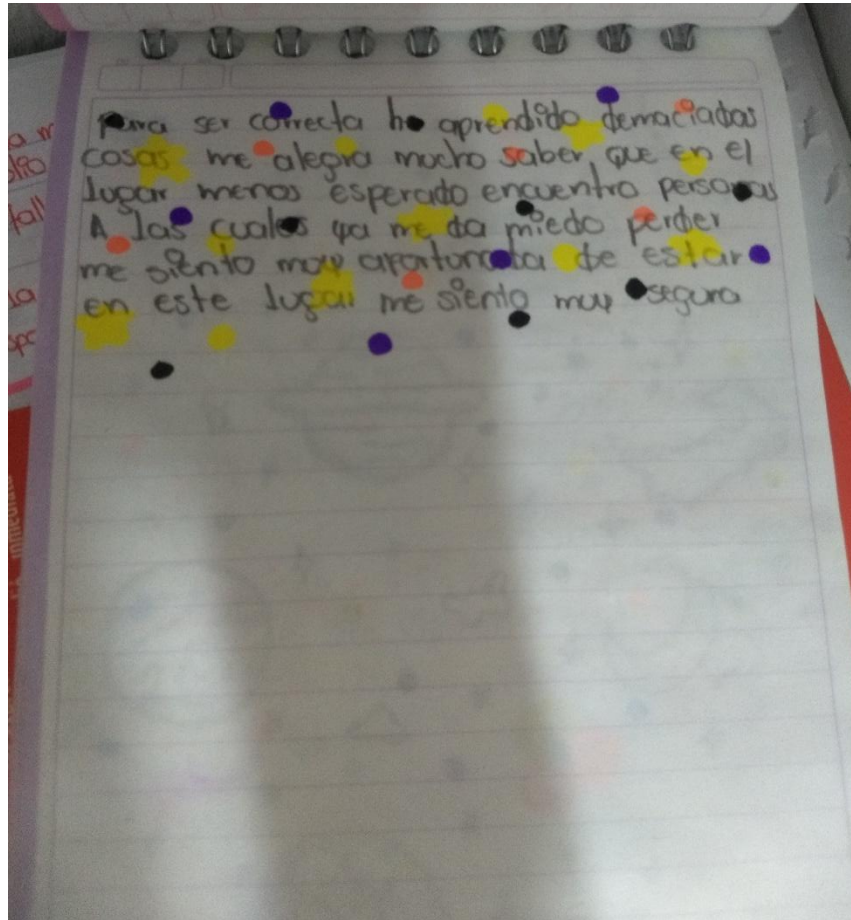 Para ser correcta he aprendido demaciadas
cosas me alegra mucho saber que en el
lugar menos esperado encuentro personas
A las cuales ya me da miedo perder
me siento muy afortunada de estar
en este lugar me siento muy segura